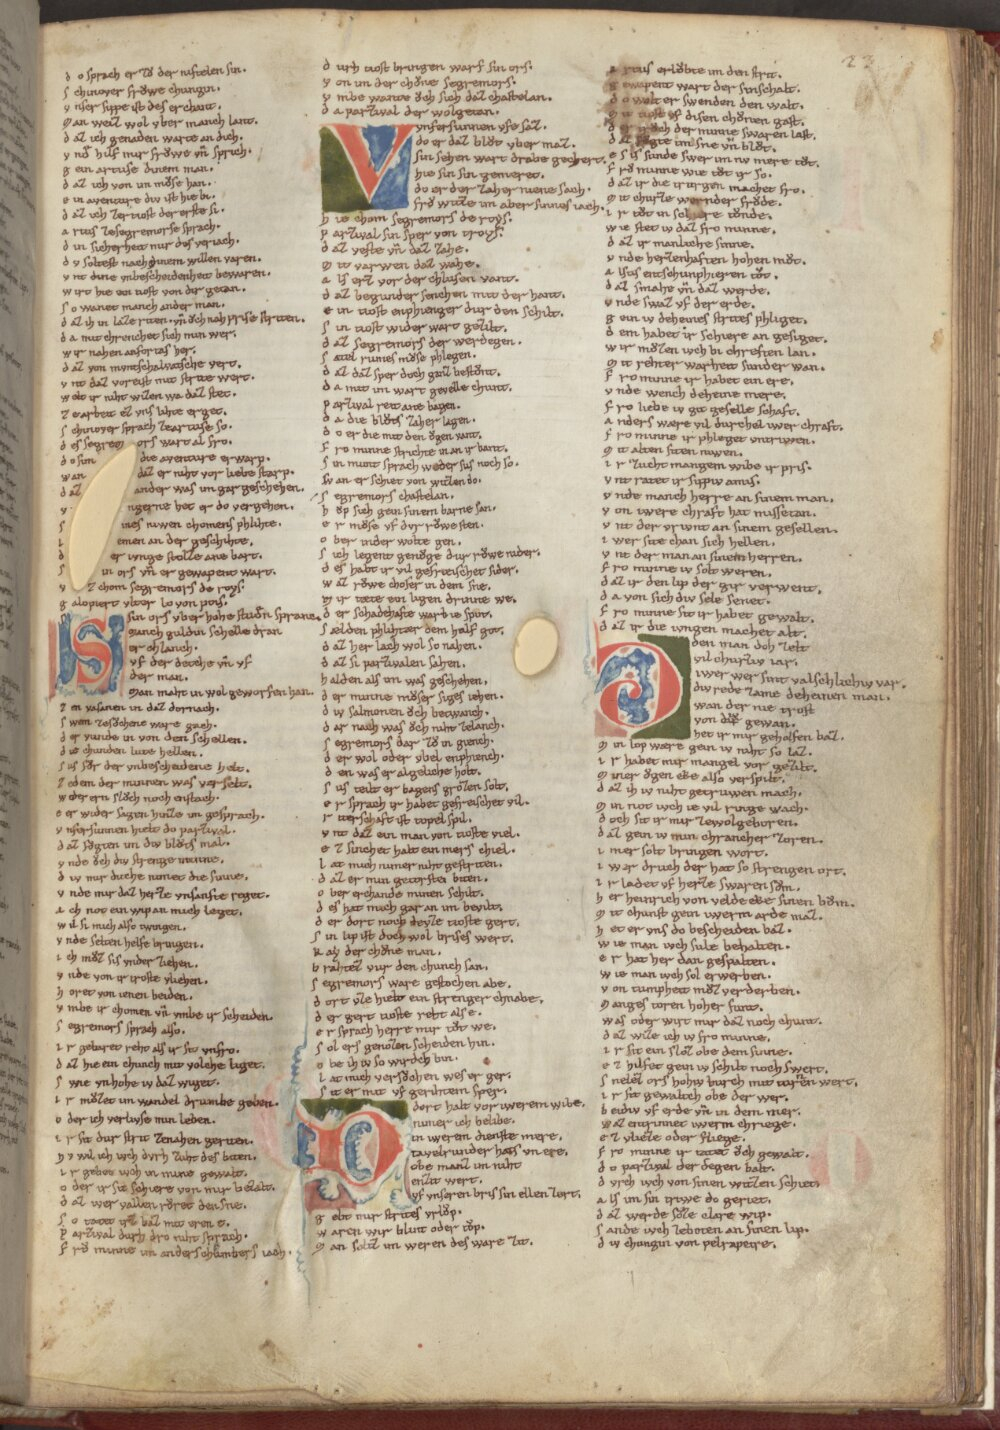 23
d o sprach er zv̊ der niftelen sin.
s chinover frǒwe chungin.
v nser sippe ist des erchant.
M an weiz wol vber manch lant.
d az ich genaden warte an dich.
v nd hilf mir frǒwe vn̄ sprich.
g ein artuse dinem man.
d az ich von im mǒse han.
e in aventure div ist hie bi.
d az ich zer tiost der erste si.
a rtus ze segremorse sprach.
d in sicherheit mir des veriach.
d v soltest nach minem willen varen.
v nt dine vnbescheidenheit bewaren.
w irt hie ein tiost von dir getan.
s o wænet manch ander man.
d az ih in laze riten. vn̄ ǒch nah prise striten.
d a mit chrenchet sich min wer.
w ir nahen anfortas her.
d az von muntschalvatsche vert.
v nt daz voreist mit strite wert.
w ir niht wizen wa daz stet.
z e arbeit ez vns lihte erget.
s chinover sprach ze artuse so.
d es segremors wart al fro.
d o sim die aventure erwarp.
w an daz er niht vor liebe starp.
d az ander was im gar geschehen.
v ngerne het er do veriehen.
s ines niwen chomens phlihte.
i emen an der geschihte.
d er ivnge stolze ane bart.
s in ors vn̄ er gewapent wart.
v z chom segremors de roys.
g alopiert vber lo von pris.
S in ors vber hohe studen spranc.
manch guldin schelle dran
erchlanch.
vf der deche vn̄ vf
der man.
Man maht in wol geworfen han.
z en vasanen in daz dornach.
s wem ze sǒchene ware gach.
d er vunde in von den schellen.
d ie chunden lute hellen.
s us fǒr der vnbescheidene helt.
z e dem der minnen was verselt.
w eder ern slǒch noch enstach.
e er wider sagen hinze im gesprach.
v nser sunnen hielt do parzival.
d az fǒgten im div blǒts mal.
v nde ǒch div strenge minne.
d iv mir diche nimet die sinne.
v nde mir daz herze vnsanfte reget.
a ch not ein wip an mich leget.
w il si mich also twingen.
v nde selten helfe bringen.
i ch mǒz sis vnder ziehen.
v nde von ir troste vliehen.
h oret von ienen beiden.
v mbe ir chomen vn̄ vmbe ir scheiden.
s egremors sprach also.
i r gebaret reht als ir sit vnfro.
d az hie ein chunch mit volche liget.
s wie vnhohe iv daz wiget.
i r mǒzet im wandel drumbe geben.
o der ich verliuse min leben.
i r sit dur strit ze nahen geriten.
n v wil ich iuch dvrh zuht des biten.
i r gebet iuch in mine gewalt.
o der ir sit schiere von mir bezalt.
d az iwer vallen rǒret den sne.
s o tatet irz baz mit eren e.
p arzival durh dro niht sprach.
f rǒ minne im anders chumbers iach.
d urh tiost bringen warf sin ors.
v on im der chone segremors.
v mbe wante ǒch sich daz chastelan.
d a parzival der wolgetan.
V vnfersunnen vfe saz.
do er daz blǒt vber maz.
sin sehen wart drabe gechert.
hie sin sin gemeret.
do er der zaher niene sach.
frǒ witze im aber sinnes iach.
h ie chom segremors de roys.
p arzival sin sper von troys.
d az veste vn̄ daz zahe.
m it varwen daz wahe.
a ls erz vor der chlusen vant.
d az begunder senchen mit der hant.
e in tiost enphienger dur den schilt.
s in tiost wider wart gezilt.
d az segremors der werdegen.
s atel rumes mǒse phlegen.
d az daz sper doch ganz bestǒnt.
d a mit im wart gevelle chunt.
p arzival reit ane bagen.
d a die blǒts zaher lagen.
d o er die mit den ǒgen vant.
f ro minne strichte in an ir bant.
s in munt sprach weder sus noch so.
w an er schiet von witzen do.
s egremors chastelan.
h ǒp sich gein sinem barne san.
e r mǒse vf dvr rǒwe sten.
o ber inder wolte gen.
s ich legent genǒge dur rǒwe nider.
d es habt ir vil gefreischet sider.
w az rǒwe choser in dem sne.
m ir tæte ein ligen drinne we.
d er schadehafte warb ie spot.
s ælden phlihtær dem half got.
d az her lach wol so nahen.
d az si parzivalen sahen.
h alden als im was geschehen.
d er minne mǒser siges iehen.
d iv salmonen ǒch betwanch.
d ar nach was ǒch niht zelanch.
s egremors dar zǒ in giench.
d er wol oder vbel enphiench.
d en was er algeliche holt.
s us teilt er bagens grozen solt.
e r sprach ir habet gefreischet vil.
r iterschaft ist topel spil.
v nt daz ein man von tioste viel.
e z sinchet halt ein mers chiel.
l at mich nimer niht gestriten.
d az er min getorste biten.
o ber erchande minen schilt.
d es hat mich gar an im bevilt.
d er dort noch deyle tioste gert.
s in lip ist doch wol brises wert.
k ay der chǒne man.
b rahtez vur den chunch san.
s egremors ware gestochen abe.
d ort vze hielt ein strenger chnabe.
d er gert tioste reht als e.
e r sprach herre mir tǒt we.
s ol ers genozen scheiden hin.
o be ih iv so wirdch bin.
l at mich versǒchen wes er ger.
s it er mit vf gerihtem sper.
D dort halt vor iwerem wibe.
nimer ich belibe.
in iwerem dienste mere.
tavelrunder hats vn ere.
obe manz im niht
enzit wert.
vf vnseren bris sin ellen zert.
g ebt mir strites vrlǒp.
w aren wir blint oder tǒp.
m an soltz im weren des ware zit.
a rtus erlǒbte im den strit.
g ewapent wart der sinschalt.
d o wolt er swenden den walt.
m it tiost vf disen chǒnen gast.
d er trǒch der minne swaren last.
d az fǒgte im sne vn̄ blǒt.
e s is sunde swer im nv mere tǒt.
f rǒ minne wie tǒt ir so.
d az ir die trurgen machet fro.
m it churze wernder frǒde.
i r tǒt in schiere tǒnde.
w ie stet iv daz fro minne.
d az ir manliche sinne.
v nde herzenhaften hohen mǒt.
a lsus entschunphieren tǒt.
d az smahe vn̄ daz werde.
v nde swaz vf der erde.
g ein iv deheines strites phliget.
d em habet ir schiere an gesiget.
w ir mǒzen iuch bi chreften lan.
m it rehter warheit sunder wan.
f ro minne ir habet ein ere.
v nde wench deheine mere.
f ro liebe iv git geselle schaft.
a nders were vil durchel iwer chraft.
f ro minne ir phleget vntriwen.
m it alten siten niwen.
i r zucht mangem wibe ir pris.
v nt ratet ir sippiv amis.
v nde manch herre an sinem man.
v on iwere chraft hat missetan.
v nt der vriunt an sinem gesellen.
i wer site chan sich hellen.
v nt der man an sinem herren.
f ro minne iv solt werren.
d az ir den lip der gir verwent.
d a von sich div sele senet.
f ro minne sit ir habet gewalt.
d az ir die ivngen machet alt.
D den man doh zelt
vil churziv iar.
iwer werc sint valschlichiv var.
div rede zame deheinen man.
wan der nie trost
von dir gewan.
het ir mir geholfen baz.
m in lop were gein iv niht so laz.
i r habet mir mangel vor gezilt.
m iner ǒgen eke also verspilt.
d az ih iv niht getruwen mach.
m in not iuch ie vil ringe wach.
d och sit ir mir ze wol geboren.
d az gein iv min chrancher zoren.
i mer solt bringen wort.
i wer druch der hat so strengen ort.
i r ladet vf herze swaren sǒm.
h er heinrich von veldeke sinen bǒm.
m it chunst gein iwerm arde maz.
h et er vns do bescheiden baz.
w ie man iuch sule behalten.
e r hat her dan gespalten.
w ie man iuch sol erwerben.
v on tumpheit mǒz verderben.
m anges toren hoher funt.
w as oder wirt mir daz noch chunt.
d az wize ich iv fro minne.
i r sit ein sloz obe dem sinne.
e z hilfet gein iv schilt noch swert.
s nelez ors hohiv burch mit turnen wert.
i r sit gewaltch obe der wer.
b eidiv vf erde vn̄ in dem mer.
w az entrinnet iwerm chriege.
e z vlieze oder fliege.
f ro minne ir tatet ǒch gewalt.
d o parzival der degen balt.
d vrch iuch von sinen witzen schiet.
a ls im sin triwe do geriet.
d az werde sǒze clare wip.
s ande iuch ze boten an sinen lip.
d iv chungin von pelrapeire.